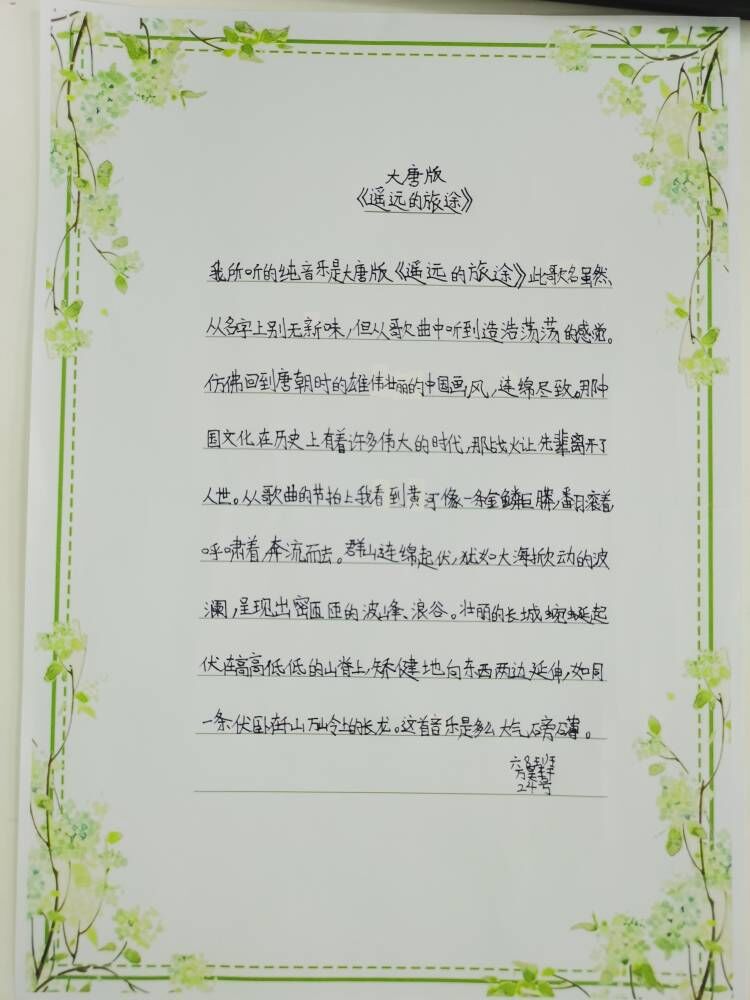 大唐版
《遥远的旅途》
我所听的纯音乐是大唐版《遥远的旅途》此歌名虽然,
从名字上别无新味,但从歌曲中听到造浩荡荡的感觉。
仿佛回到唐朝时的雄伟壮丽的中国画风,连绵尽致。那中
国文化在历史上有着许多伟大的时代,那战火让先辈离开了
人世。从歌曲的节拍上我看到黄河像一条金鳞巨蟒,翻滚着,
呼啸着,奔流而去。群山连绵起伏,犹如大海掀动的波
澜,呈现出密匝匝的波峰、浪谷。壮丽的长城蜿蜒起
伏在高高低低的山脊上,矫健地向东西两边延伸,如同
一条伏卧在千山万岭上的长龙。这首音乐是多么大气磅礴。
六8班
24号